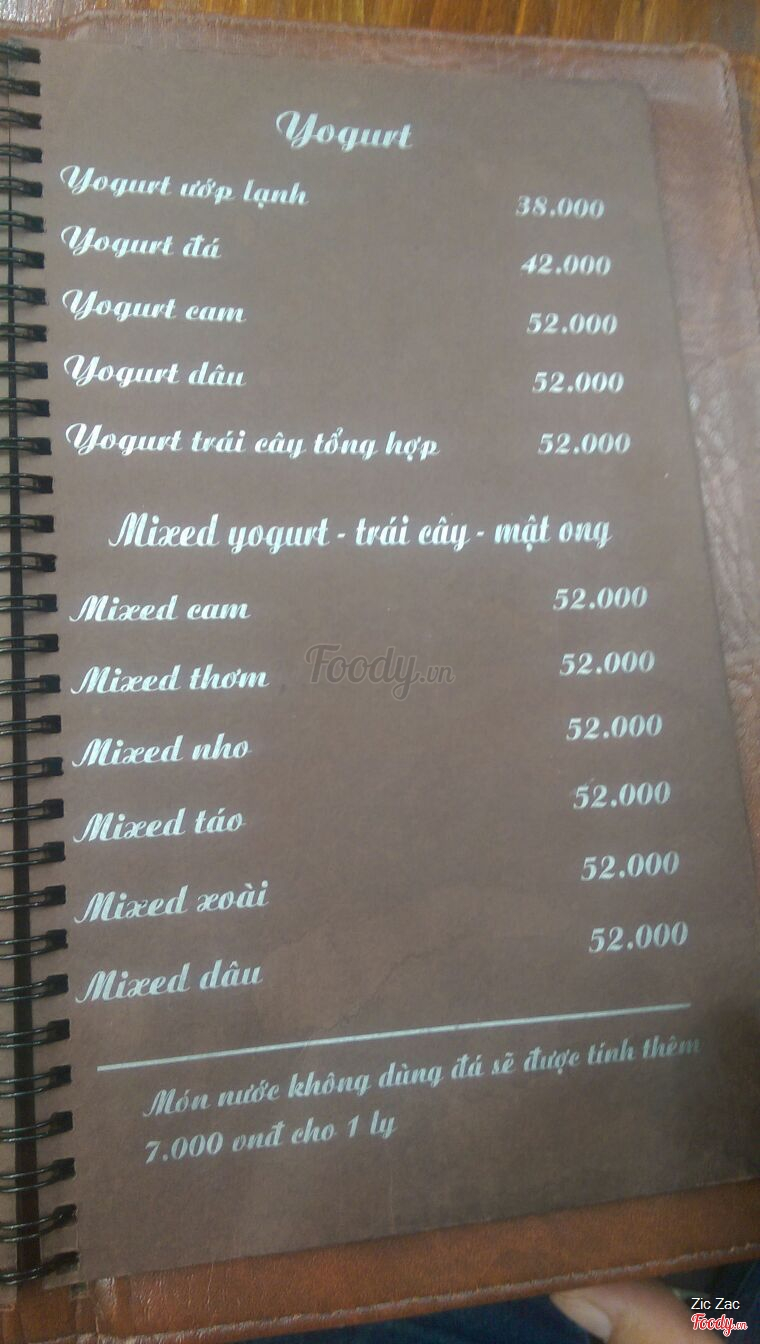 Yogurt
Yogurt ướp lạnh 38.000
Yogurt đá 42.000
Yogurt cam 52.000
Yogurt dâu 52.000
Yogurt trái cây tổng hợp 52.000
Mixed yogurt - trái cây - mật ong
Mixed cam 52.000
Mixed thơm 52.000
Foody.vn
Mixed nho 52.000
Mixed táo 52.000
Mixed xoài 52.000
Mixed dâu 52.000
Món nước không dùng đá sẽ được tính thêm
7.000 vnđ cho 1 ly
Zic Zac
Foody.vn